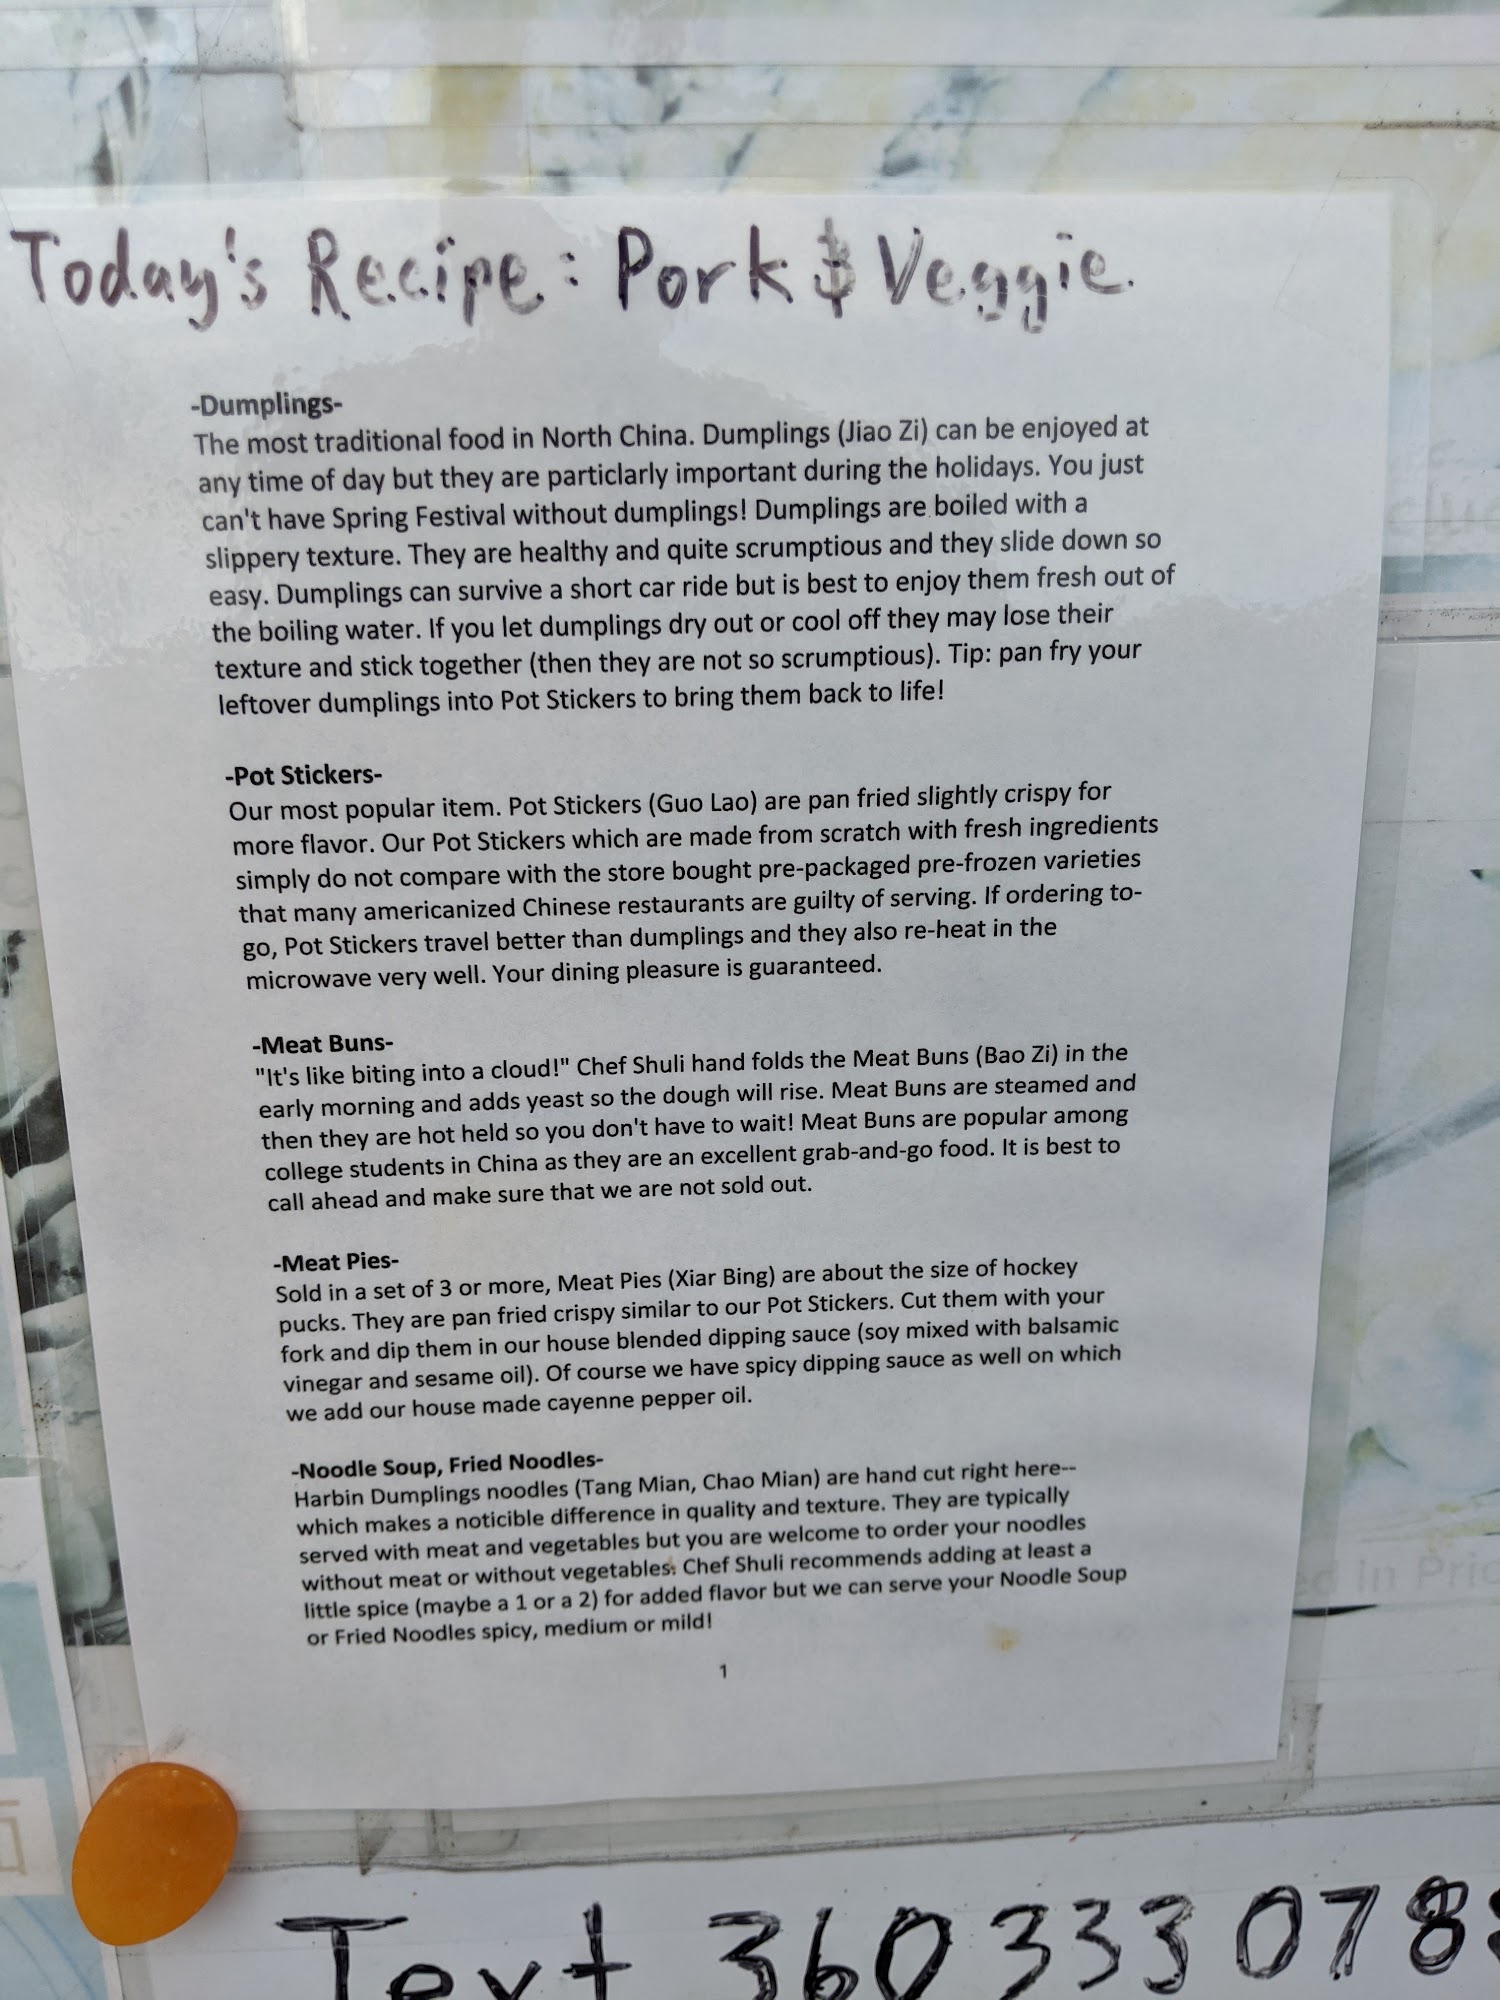 Today's Recipe: Pork & Veggie.
-Dumplings-
The most traditional food in North China. Dumplings (Jiao Zi) can be enjoyed at
any time of day but they are particlarly important during the holidays. You just
can't have Spring Festival without dumplings! Dumplings are boiled with a
slippery texture. They are healthy and quite scrumptious and they slide down so
easy. Dumplings can survive a short car ride but is best to enjoy them fresh out of
the boiling water. If you let dumplings dry out or cool off they may lose their
texture and stick together (then they are not so scrumptious). Tip: pan fry your
leftover dumplings into Pot Stickers to bring them back to life!
-Pot Stickers-
Our most popular item. Pot Stickers (Guo Lao) are pan fried slightly crispy for
more flavor. Our Pot Stickers which are made from scratch with fresh ingredients
simply do not compare with the store bought pre-packaged pre-frozen varieties
that many americanized Chinese restaurants are guilty of serving. If ordering to-
go, Pot Stickers travel better than dumplings and they also re-heat in the
microwave very well. Your dining pleasure is guaranteed.
-Meat Buns-
"It's like biting into a cloud!" Chef Shuli hand folds the Meat Buns (Bao Zi) in the
early morning and adds yeast so the dough will rise. Meat Buns are steamed and
then they are hot held so you don't have to wait! Meat Buns are popular among
college students in China as they are an excellent grab-and-go food. It is best to
call ahead and make sure that we are not sold out.
-Meat Pies-
Sold in a set of 3 or more, Meat Pies (Xiar Bing) are about the size of hockey
pucks. They are pan fried crispy similar to our Pot Stickers. Cut them with your
fork and dip them in our house blended dipping sauce (soy mixed with balsamic
vinegar and sesame oil). Of course we have spicy dipping sauce as well on which
we add our house made cayenne pepper oil.
-Noodle Soup, Fried Noodles-
Harbin Dumplings noodles (Tang Mian, Chao Mian) are hand cut right here--
which makes a noticible difference in quality and texture. They are typically
served with meat and vegetables but you are welcome to order your noodles
without meat or without vegetables. Chef Shuli recommends adding at least a
little spice (maybe a 1 or a 2) for added flavor but we can serve your Noodle Soup
or Fried Noodles spicy, medium or mild!
1
Text 360 333 078